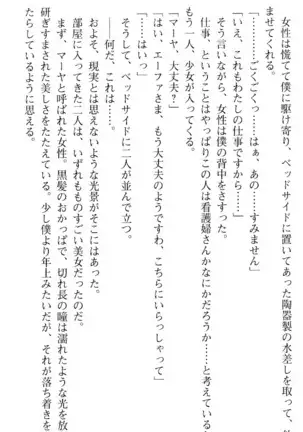 女性は慌てて僕に駆け寄り、ベッドサイドに置いてあった陶器製の水差しを取って、
ませてくれる。
「……ごくごくっ……はぁ、あの……すみません」
「いえ、これもわたしの仕事ですから……」
そう言いながら、女性は僕の背中をさすった。
仕事、ということはやっぱりこの人は看護婦さんかなにかだろうか……と考えている
もう一人、少女が入ってくる。
「マーヤ、大丈夫？」
「はい、エーファさま、もう大丈夫のようですわ、こちらにいらっしゃって」
「……はいっ」
そうして、ベッドサイドに二人が並んで立つ。
――何だ、これは……。
およそ、現実とは思えないような光景がそこにはあった。
部屋に入ってきた二人は、いずれもものすごい美女だったのだ。
まず、マーヤと呼ばれた女性。黒髪のおかっぱで、切れ長の瞳は濡れたような光を放
研ぎすまされた美しさをたたえている。少し僕より年上みたいだが、それが落ち着きを
たらしているように思える。